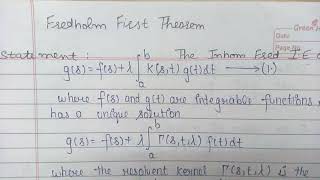 Fredholm First Theorem
Green
Date
Page No
Statement : The Inhom Fred I.E
g(s) = f(s) + λ ∫_a^b K(s,t) g(t) dt → (1)
where f(s) and g(t) are integrable functions
has a unique solution
g(s) = f(s) + λ ∫_a^b Γ(s,t,λ) f(t) dt
where the resolvent kernel Γ(s,t,λ) is the